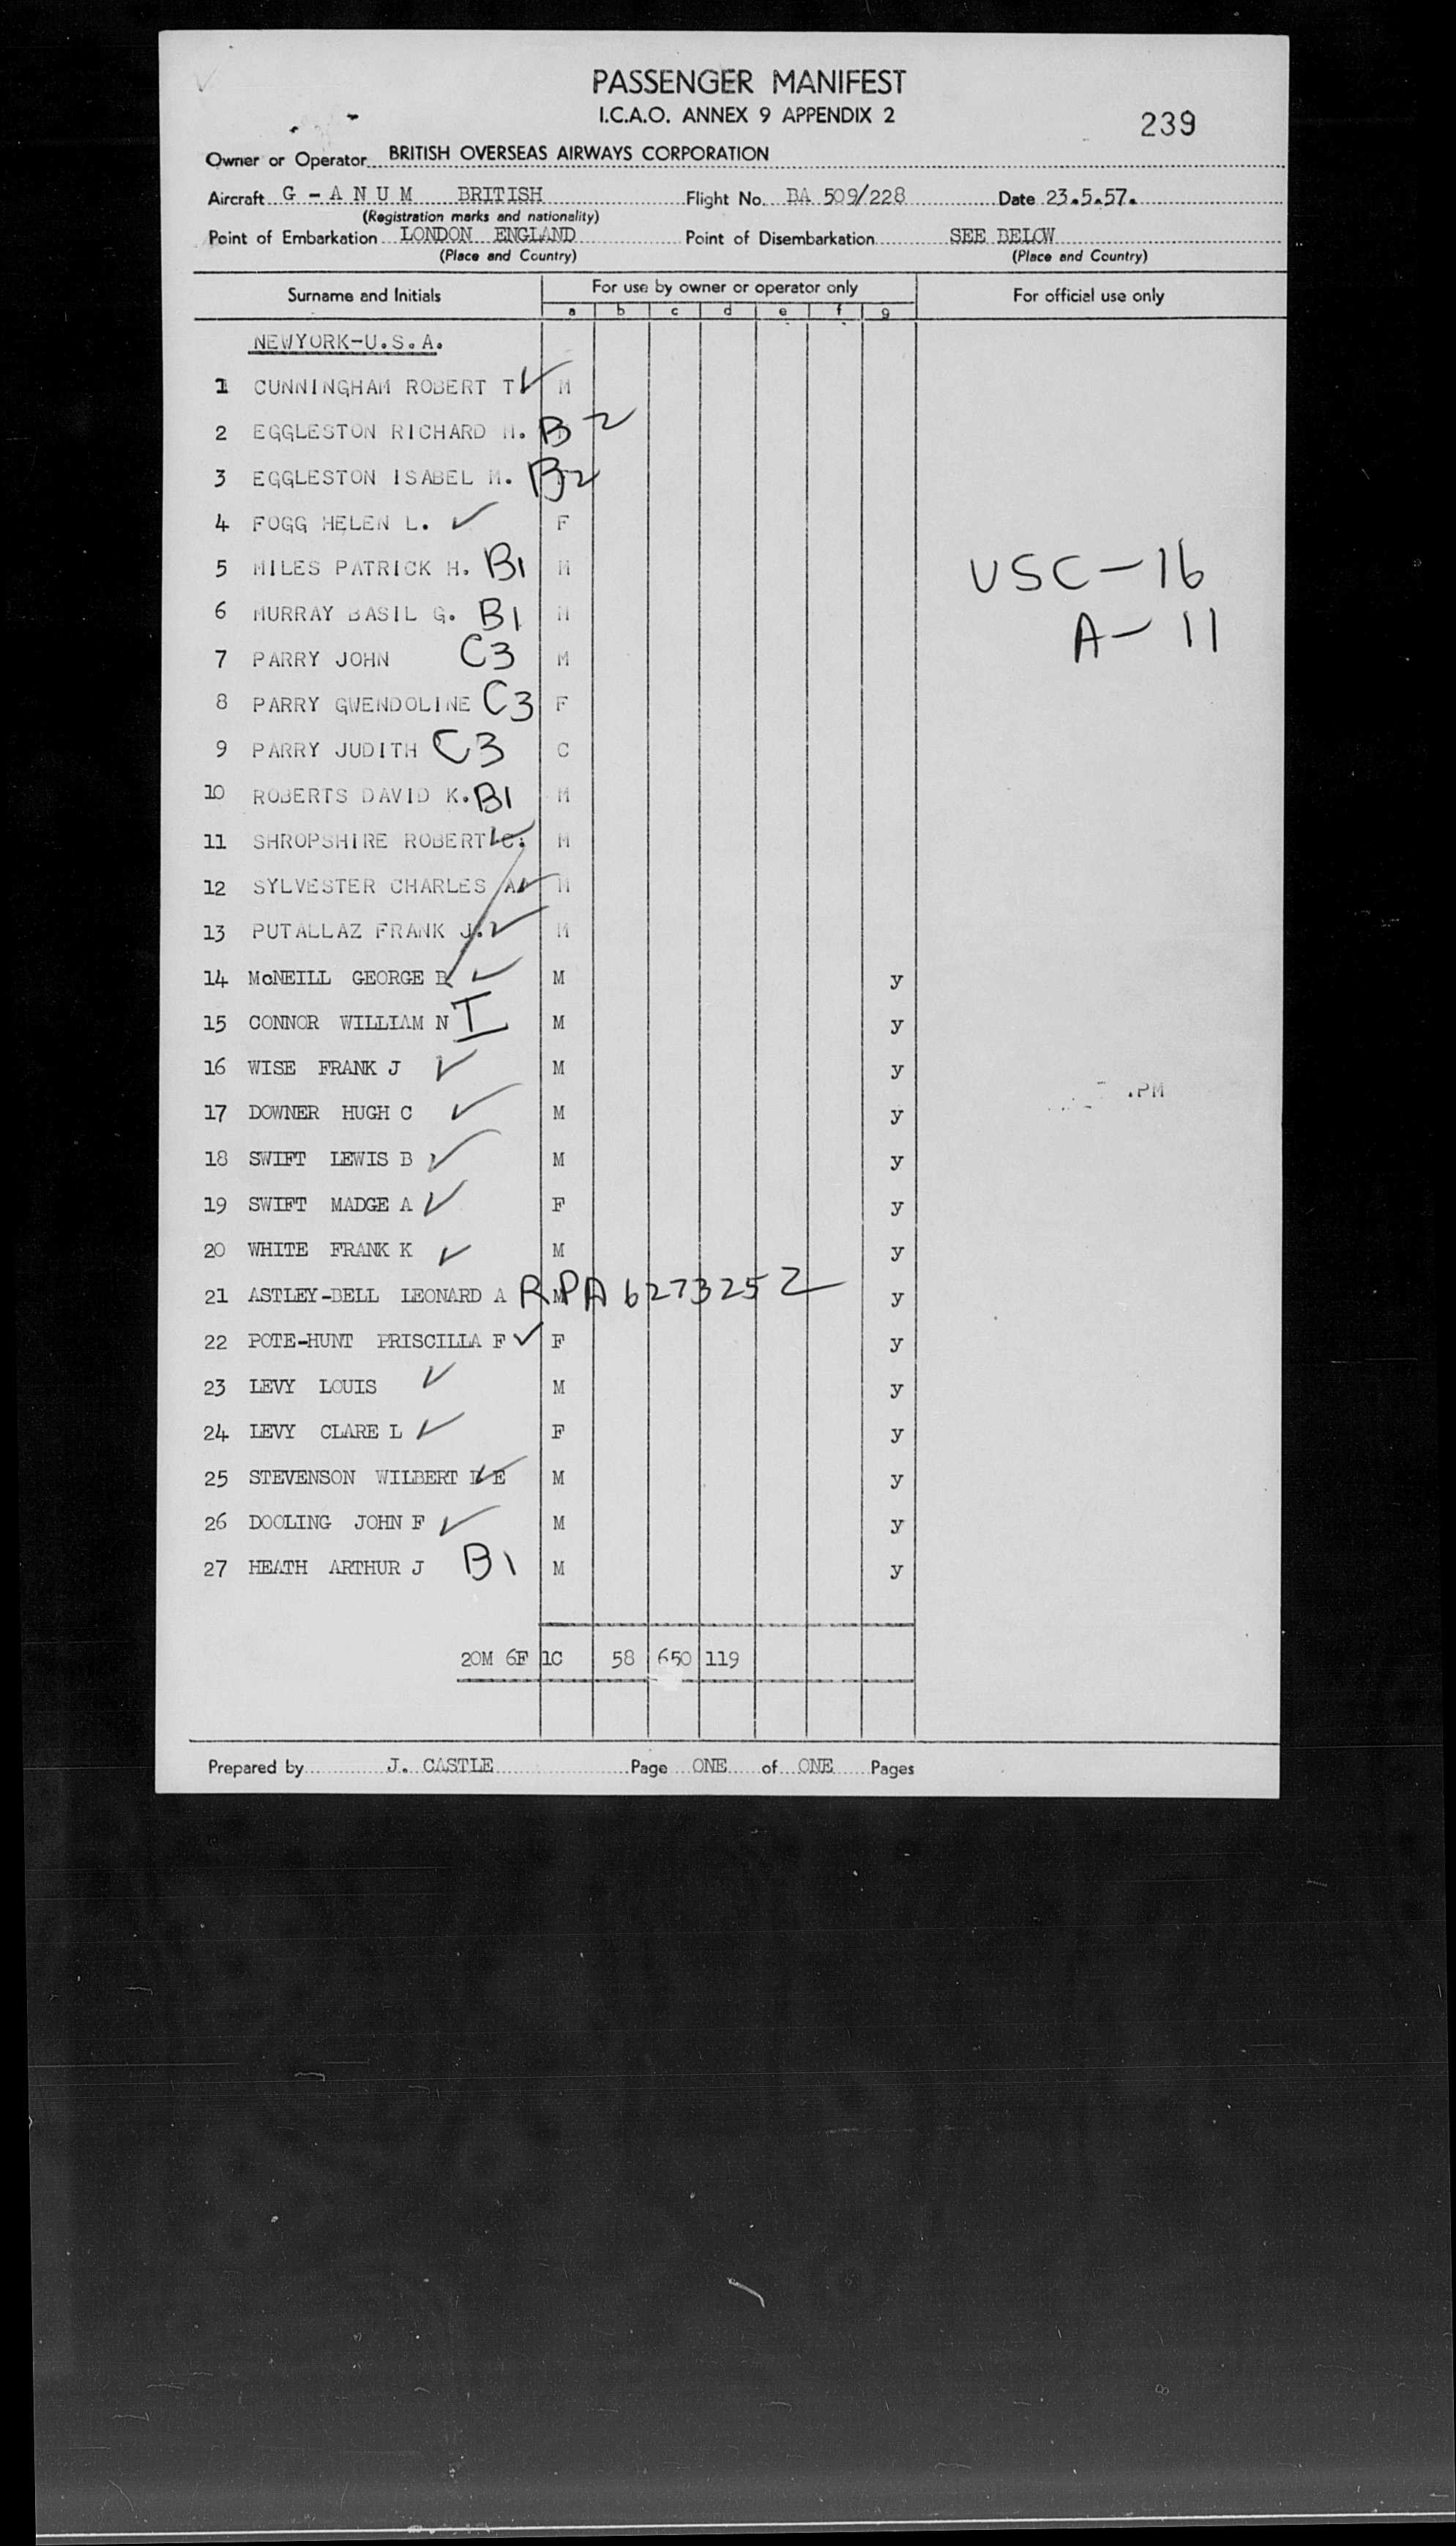 PASSENGER MANIFEST
I.C.A.O. ANNEX 9 APPENDIX 2
239
Owner or Operator BRITISH OVERSEAS AIRWAYS CORPORATION
Aircraft G - A N U M BRITISH Flight No. BA 509/228 Date 23.5.57.
(Registration marks and nationality)
Point of Embarkation LONDON ENGLAND Point of Disembarkation SEE BELOW
(Place and Country) (Place and Country)
Surname and Initials For use by owner or operator only For official use only
a b c d e f g
NEWYORK-U.S.A.
1 CUNNINGHAM ROBERT T ✓ M
2 EGGLESTON RICHARD M. B2
3 EGGLESTON ISABEL M. B2
4 FOGG HELEN L. ✓ F
5 MILES PATRICK H. B1 M
USC-16
6 MURRAY BASIL G. B1 M
A-11
7 PARRY JOHN C3 M
8 PARRY GWENDOLINE C3 F
9 PARRY JUDITH C3 C
10 ROBERTS DAVID K. B1 M
11 SHROPSHIRE ROBERT C. ✓ M
12 SYLVESTER CHARLES A ✓ M
13 PUTALLAZ FRANK J. ✓ M
14 McNEILL GEORGE B ✓ M y
15 CONNOR WILLIAM N I M y
16 WISE FRANK J ✓ M y
17 DOWNER HUGH C ✓ M y
.PM
18 SWIFT LEWIS B ✓ M y
19 SWIFT MADGE A ✓ F y
20 WHITE FRANK K ✓ M y
21 ASTLEY-BELL LEONARD A RPA 6273252 M y
22 POTE-HUNT PRISCILLA F ✓ F y
23 LEVY LOUIS ✓ M y
24 LEVY CLARE L ✓ F y
25 STEVENSON WILBERT ✓ E M y
26 DOOLING JOHN F ✓ M y
27 HEATH ARTHUR J B1 M y
20M 6F 1C 58 650 119
Prepared by J. CASTLE Page ONE of ONE Pages